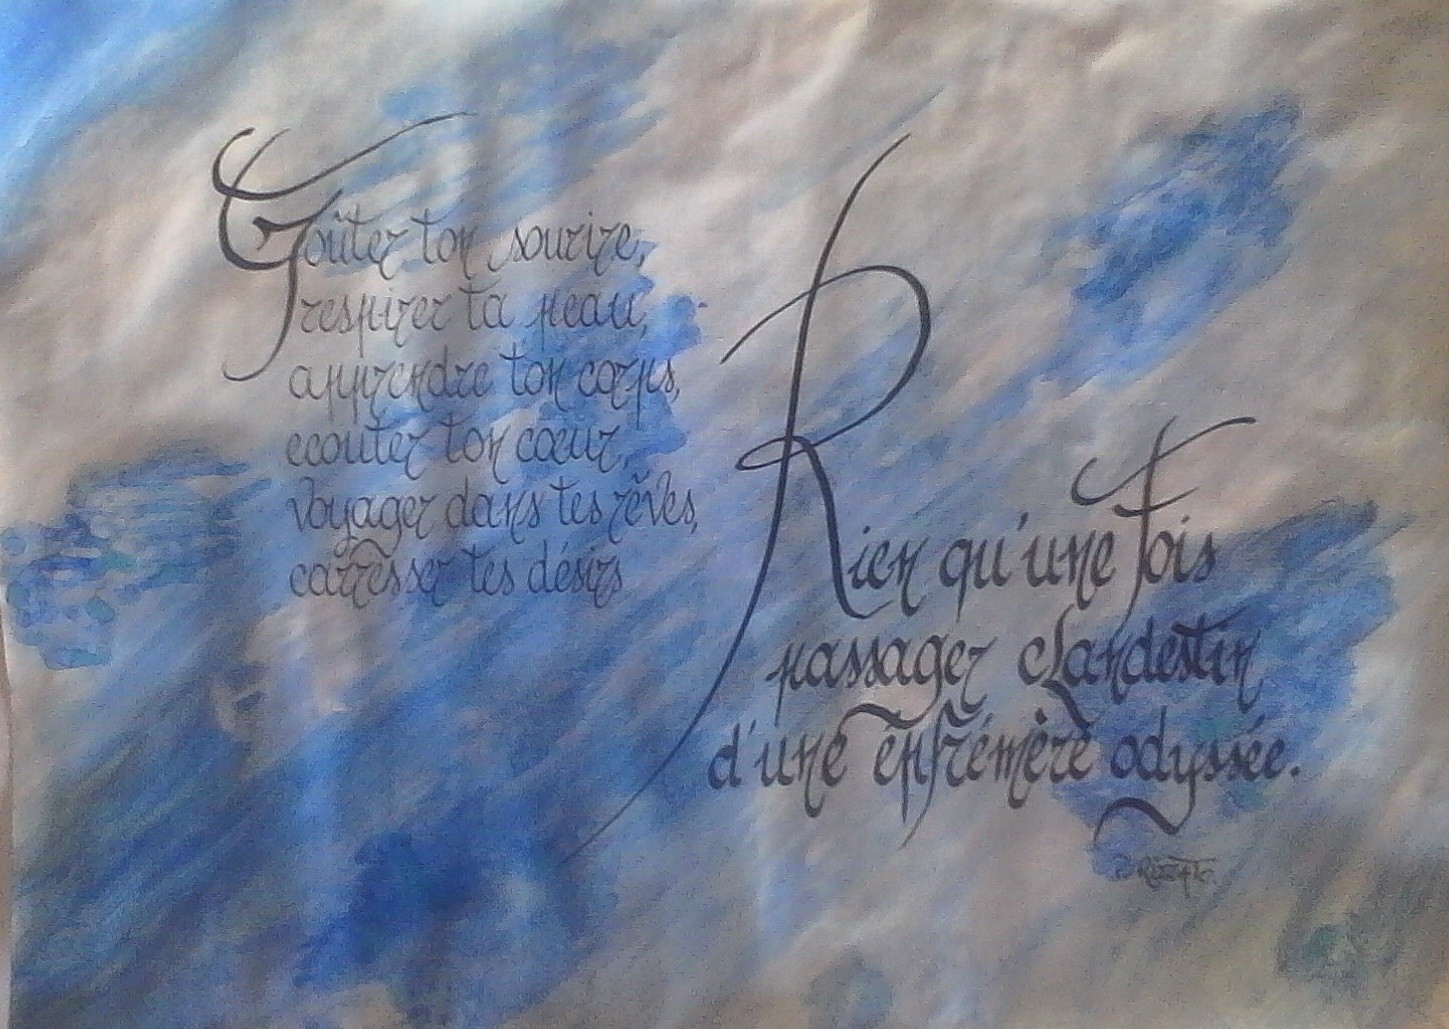 Goûter ton sourire,
respirer ta peau,
apprendre ton corps,
ecouter ton cœur,
voyager dans tes rêves,
carresser tes désirs
Rien qu'une fois
passager clandestin
d'une enfrémère odyssée.